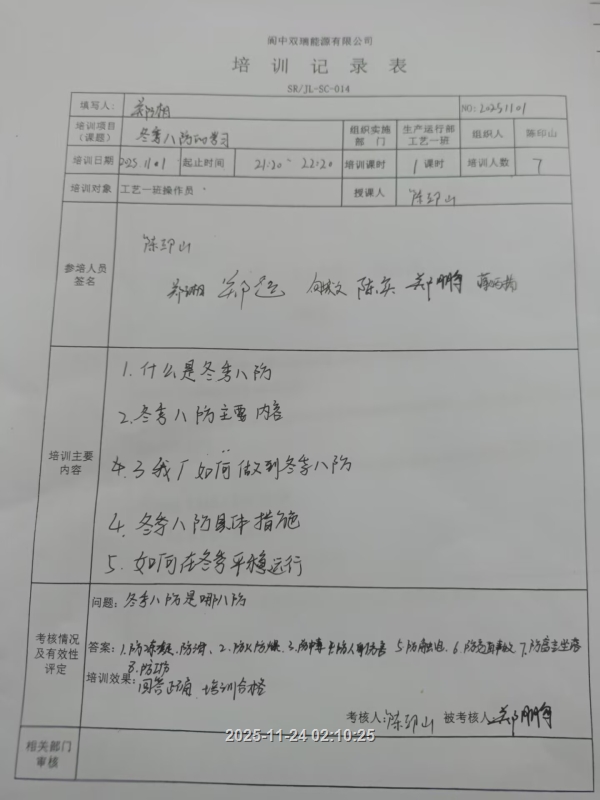 阆中双瑞能源有限公司
培训记录表
SR/JL-SC-014
填写人： NO:20251101
培训项目（课题） 冬季八防的学习 组织实施部门 生产运行部工艺一班 组织人 陈印山
培训日期 2025.11.01 起止时间 21:20-22:20 培训课时 1课时 培训人数 7
培训对象 工艺一班操作员 授课人 陈印山
参培人员签名
陈印山
郑超 陈实 郑鹏
培训主要内容
1.什么是冬季八防
2.冬季八防主要内容
3我厂如何做到冬季八防
4.冬季八防具体措施
5.如何在冬季平稳运行
考核情况及有效性评定
问题：冬季八防是哪八防
答案：1.防冻凝、防滑、2.防火防爆、3.防中毒 4防人身伤害 5防触电 6 防交通事故 7.防高空坠落
8.防
培训效果：回答正确 培训合格
考核人：陈印山 被考核人：郑鹏
2025-11-24 02:10:25
相关部门审核